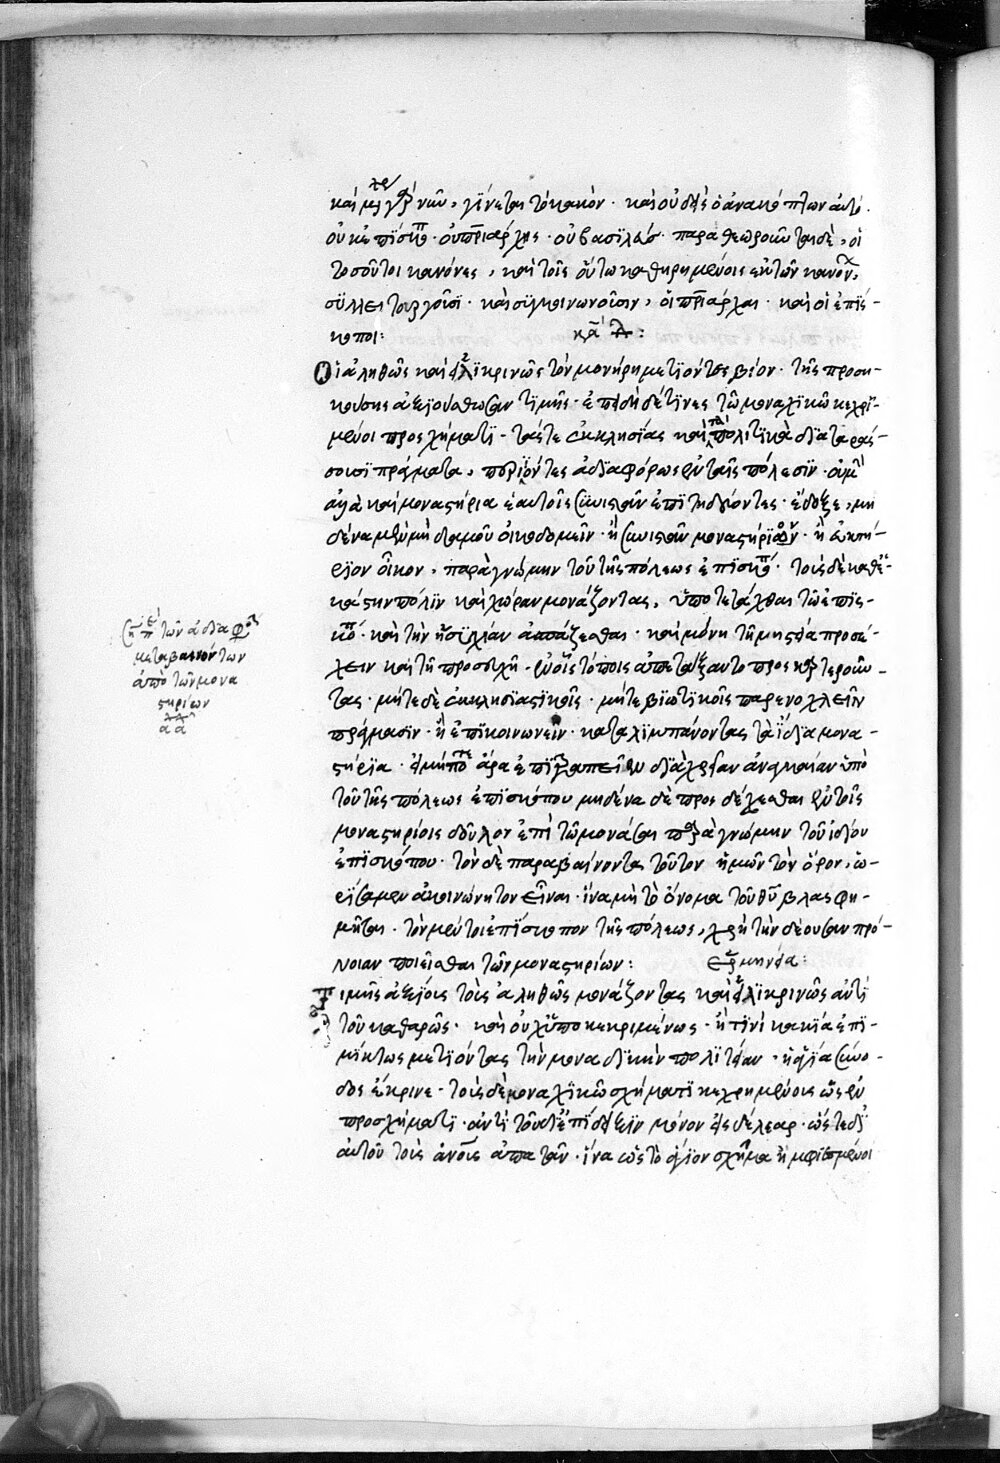 καὶ μέχρι γὰρ νῦν, γίνεται τὸ κακὸν · καὶ οὐδεὶς ὁ ἀνακόπτων αὐτό ·
οὐκ ἐπίσκοπος · οὐ πατριάρχης · οὐ βασιλεύς · παραθεωροῦνται δὲ, οἱ
τοσοῦτοι κανόνες, καὶ τοῖς οὕτω καθῃρημένοις ἐκ τῶν κανόνων,
συλλειτουργοῦσι · καὶ συγκοινωνοῦσιν, οἱ πατριάρχαι · καὶ οἱ ἐπίσ-
κοποι:
Οἱ ἀληθῶς καὶ εἰλικρινῶς τὸν μονήρη μετιόντες βίον · τῆς προση-
κούσης ἀξιούσθωσαν τιμῆς · ἐπειδὴ δέ τινες τῷ μοναχικῷ κεχρη-
μένοι προσχήματι · τάς τε ἐκκλησίας καὶ τὰ πολιτικὰ διαταράσ-
σουσι πράγματα, περιϊόντες ἀδιαφόρως ἐν ταῖς πόλεσιν · οὐ μὴν
ἀλλὰ καὶ μοναστήρια ἑαυτοῖς συνιστᾶν ἐπιτηδεύοντες · ἔδοξε, μη
δένα μὲν μηδαμοῦ οἰκοδομεῖν · ἢ συνιστᾶν μοναστήριον · ἢ εὐκτή-
ριον οἶκον, παρὰ γνώμην τοῦ τῆς πόλεως ἐπισκόπου · τοὺς δὲ καθ' ἑ-
κάστην πόλιν καὶ χώραν μονάζοντας, ὑποτετάχθαι τῷ ἐπισ-
κόπῳ · καὶ τὴν ἡσυχίαν ἀσπάζεσθαι · καὶ μόνῃ τῇ νηστείᾳ προσέ-
χειν καὶ τῇ προσευχῇ · ἐν οἷς τόποις ἀπετάξαντο προσκαρτεροῦν-
τας · μήτε δὲ ἐκκλησιαστικοῖς · μήτε βιωτικοῖς παρενοχλεῖν
πράγμασιν · ἢ ἐπικοινωνεῖν · καταλιμπάνοντας τὰ ἴδια μονα-
στήρια · εἰ μή ποτε ἄρα ἐπιτραπεῖεν διὰ χρείαν ἀναγκαίαν ὑπὸ
τοῦ τῆς πόλεως ἐπισκόπου μηδένα δὲ προσδέχεσθαι ἐν τοῖς
μοναστηρίοις δοῦλον ἐπὶ τῷ μονάσαι παρὰ γνώμην τοῦ ἰδίου
ἐπισκόπου · τὸν δὲ παραβαίνοντα τοῦτον ἡμῶν τὸν ὅρον, ὡ-
ρίσαμεν ἀκοινώνητον εἶναι · ἵνα μὴ τὸ ὄνομα τοῦ θῦ βλασφη-
μῆται · τὸν μέντοι ἐπίσκοπον τῆς πόλεως, χρὴ τὴν δέουσαν πρό-
νοιαν ποιεῖσθαι τῶν μοναστηρίων: Ἑρμηνεία:
Τιμῆς ἀξιοῖς τοὺς ἀληθῶς μονάζοντας καὶ εἰλικρινῶς ἀντὶ
τοῦ καθαρῶς · καὶ οὐχ ὑποκεκριμένως · ἤ τινι κακίᾳ ἐπι-
μίκτως μετιόντας τὴν μοναδικὴν πολιτείαν · ἡ ἁγία σύνο-
δος ἔκρινε · τοὺς δὲ μοναχικῷ σχήματι κεχρημένους ὡς ἐν
προσχήματι · ἀντὶ τοῦ δι' ἐπίδειξιν μόνον εἰς δέλεαρ · ὥστε δι'
αὐτοῦ τοὺς ἀνοῦς ἀπατᾶν · ἵνα ὡς τὸ ἅγιον σχῆμα ἠμφιεσμένοι
τῶν ἀδιαφόρως
μεταβαινόντων
ἀπὸ τῶν μονα
στηρίων